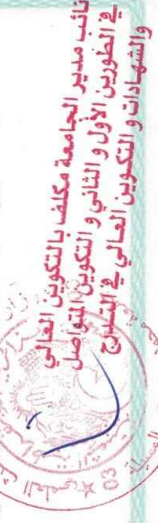 نائب مدير الجامعة مكلف بالتكوين العالي
في الطورين الأول و الثاني و التكوين المتواصل
والشهادات و التكوين العالي في التدرج
03